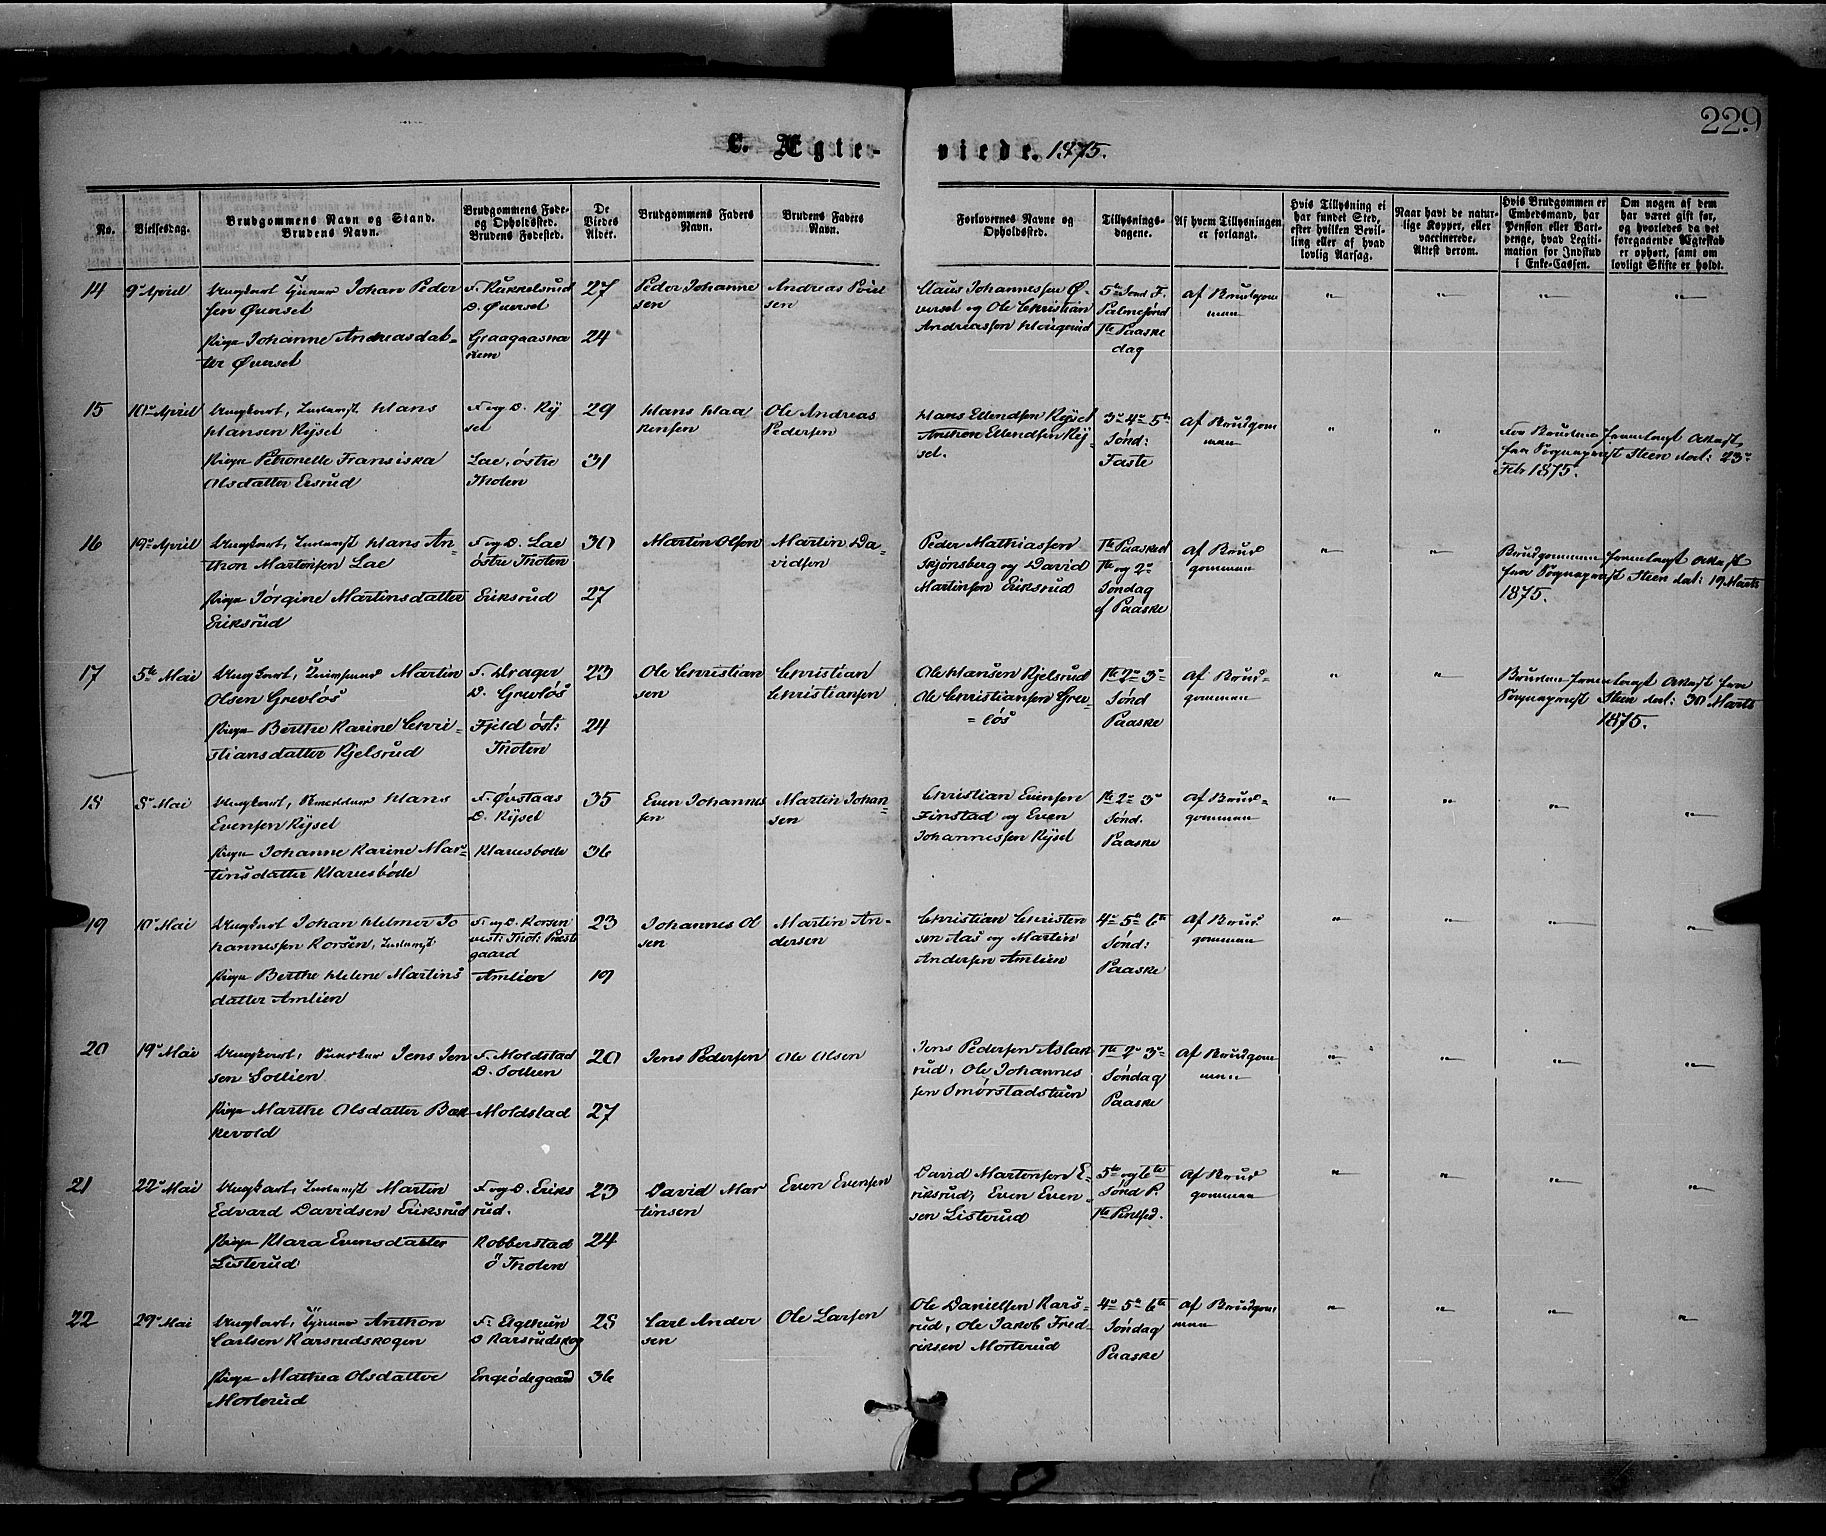 229
C. Ægte- viede. 1875.
No.
Vielsesdag.
Brudgommens Navn og Stand.
Brudens Navn.
Brudgommens Føde-
og Opholdssted.
Brudens Fødested.
De
Viedes
Alder.
Brudgommens Faders
Navn.
Brudens Faders
Navn.
Forlovernes Navne og
Opholdssted.
Tillysnings-
dagene.
Af hvem Tillysningen
er forlangt.
Hvis Tillysning ei
har fundet Sted,
efter hvilken Bevil-
ling eller af hvad
lovlig Aarsag.
Naar havt de natur-
lige Kopper, eller
vaccinerede.
Attest derom.
Hvis Brudgommen er
Embedsmand, har
Pension eller Vart-
penge, hvad Legiti-
mation for Indskud
i Enke-Cassen.
Om nogen af dem
har været gift før,
og hvorledes da det
foregaaende Ægteskab
er ophørt, samt om
lovligt Skifte er holdt.
14
9 April
Ungkarl Johan Peder
sen Øverset
Pige Johanne Andreasdat-
ter Øverset
D. Øverset
27
24
Peder Johanne
sen
Andreas
Claus Johannessen Ø-
verset og Ole Christian
Andreassen
5te Sønd. F.
Palmesønd
1te Paaske
dag
af Brudgom
men
15
10 April
Ungkarl, Indernst Hans
Hansen Ryset
Pige Petronelle Fransiska
Olsdatter Eisrud
F. og O. Ry
set
Lae, østre
Thoten
29
31
Hans Haa
kensen
Ole Andreas
Pedersen
Hans Ellendsen Ryset
Anthon Ellendsen Ry-
set.
3- 4- 5te
Sønd:
Faste
af Brudgom
men
For Bruden fremlagt Attest
fra Sogneprest Steen dat: 23-
Feb 1875.
16
19 April
Ungkarl, Indernst Hans An-
thon Martinsen Lae
Pige Jørgine Martinsdatter
Eriksrud
F. og O. Lae
østre Thoten
Eriksrud
30
27
Martin Olsen
Martin Da-
vidsen
Peder Mathiassen
Skjønsberg og David
Martinsen Eriksrud
1te Paasked
1te og 2-
Søndag
ef Paaske
af Brud
gommen
Brudgommen fremlagt Attest
fra Sogneprest Steen dat: 19 Marts
1875.
17
5te Mai
Ungkarl, Martin
Olsen Grevløs
Pige Berthe Karine Chri-
stiansdatter Kjelsrud
F. Drager
O. Grevløs
Fjeld øst:
Thoten
23
24
Ole Christian
sen
Christian
Christiansen
Ole Hansen Kjelsrud
Ole Christiansen Gre-
= løs
1te 2- 3-
Sønd
Paaske
af Brud-
gommen
Bruden fremlagt Attest fra
Sogneprest Steen dat: 30 Marts
1875.
18
8- Mai
Ungkarl, Hans
Evensen Ryset
Pige Johanne Karine Mar-
tinsdatter Klæresbøle
F. Øvstaas
O. Ryset
35
36
Even Johannes
sen
Martin Johan-
sen
Christian Evensen
Finstad og Even
Johannessen Ryset
1te 2- 3-
Sønd.
Paaske
af Brud-
gommen
19
10- Mai
Ungkarl Johan Helmer Jo
hannessen Korsen, Indernst
Pige Berthe Helene Martins
datter Amlien
F. og O. Korsen
vest: Thot: Præst
gaard
Amlien
23
19
Johannes Ol
sen
Martin An-
dersen
Christian Christen
sen Aas og Martin
Andersen Amlien
4- 5- 6te
Sønd:
Paaske
af Brud
gommen
20
19- Mai
Ungkarl, Jens Jen
sen Sollien
Pige Marthe Olsdatter Bak-
kevold
F. Moldstad
O. Sollien
Moldstad
20
27
Jens Pedersen
Ole Olsen
Jens Pedersen Aslak
rud, Ole Johannes
sen Smørstadstuen
1te 2- 3-
Søndag
Paaske
af Brudgom
men
21
22- Mai
Ungkarl, Indernst Martin
Edvard Davidsen Eriksrud
Pige Klara Evensdatter
Listerud
F. og O. Eriks
rud.
Kobberstad
ö Thoten
23
24
David Mar
tinsen
Even Evensen
David Martinsen E-
riksrud, Even Even-
sen Listerud
5te og 6te
Sønd P.
1te Pintsed.
af Brud
gommen
22
29- Mai
Ungkarl, Anthon
Carlsen Karsrudskogen
Pige Mathea Olsdatter
Morterud
O Karsrudskog
Engeødegaard
28
36
Carl Ander
sen
Ole Larsen
Ole Danielsen Kars-
rud, Ole Jakob Fred-
riksen Morterud
4- 5- 6te
Søndag
Paaske
af Brudgom
men